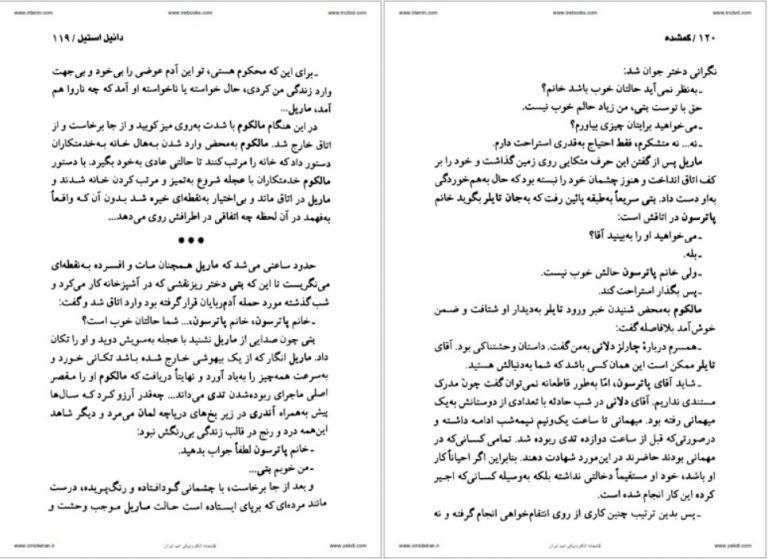 www.irtanin.com
www.irebooks.com
www.irczlvd.com
دانیل استیل / ۱۱۹
ـ برای این که محکوم هستی، تو این آدم عوضی را بی‌خود و بی‌جهت
وارد زندگی من کردی، حال خواسته یا ناخواسته او آمد که چه ناروا هم
آمد، ماریل...
در این هنگام مالکوم با شدت به‌روی میز کوبید و از جا برخاست و از
اتاق خارج شد. مالکوم به‌محض وارد شدن به‌هال خانه به‌خدمتکاران
دستور داد که خانه را مرتب کنند تا حالتی عادی به‌خود بگیرد. با دستور
مالکوم خدمتکاران با عجله شروع به‌تمیز و مرتب کردن خانه شدند و
ماریل در اتاق ماند و بی‌اختیار به‌نقطه‌ای خیره شد بدون آن که واقعاً
به‌فهمد در آن لحظه چه اتفاقی در اطرافش روی می‌دهد...
***
حدود ساعتی می‌شد که ماریل همچنان مات و افسرده به‌نقطه‌ای
می‌نگریست تا این که بتی دختر ریزنقشی که در آشپزخانه کار می‌کرد و
شب گذشته مورد حمله آدم‌ربایان قرار گرفته بود وارد اتاق شد و گفت:
ـ خانم پاترسون، خانم پاترسون... شما حالتان خوب است؟
بتی چون صدایی از ماریل نشنید با عجله به‌سویش دوید و او را تکان
داد. ماریل انگار که از یک بیهوشی خارج شده باشد تکانی خورد و
به‌سرعت همه‌چیز را به‌یاد آورد و نهایتاً دریافت که مالکوم او را مقصر
اصلی ماجرای ربوده‌شدن تدی می‌داند... چه‌قدر آرزو کرد که سال‌ها
پیش به‌همراه آندری در زیر یخ‌های دریاچه لمان می‌مرد و دیگر شاهد
این‌همه درد و رنج در قالب زندگی بی‌رنگش نبود:
ـ خانم پاترسون لطفاً جواب بدهید.
ـ من خوبم بتی...
و بعد از جا برخاست، با چشمانی گودافتاده و رنگ‌پریده، درست
مانند مرده‌ای که برپای ایستاده است حالت ماریل موجب وحشت و
www.omideiran.ir
کتابخانه الکترونیکی امید ایران
www.yekdi.com
www.irtanin.com
www.irebooks.com
www.irczlvd.com
۱۲۰ / گمشده
نگرانی دختر جوان شد:
ـ به‌نظر نمی‌آید حالتان خوب باشد خانم؟
حق با توست بتی، من زیاد حالم خوب نیست.
ـ می‌خواهید برایتان چیزی بیاورم؟
ـ نه... نه متشکرم، فقط احتیاج به‌قدری استراحت دارم.
ماریل پس از گفتن این حرف متکایی روی زمین گذاشت و خود را بر
کف اتاق انداخت و هنوز چشمان خود را نبسته بود که حال به‌هم‌خوردگی
به‌او دست داد. بتی سریعاً به‌طبقه پائین رفت که به‌جان تایلر بگوید خانم
پاترسون در اتاقش است:
ـ می‌خواهید او را به‌بینید آقا؟
ـ بله.
ـ ولی خانم پاترسون حالش خوب نیست.
ـ پس بگذار استراحت کند.
مالکوم به‌محض شنیدن خبر ورود تایلر به‌دیدار او شتافت و ضمن
خوش‌آمد بلافاصله گفت:
ـ همسرم دربارهٔ چارلز دلانی به‌من گفت. داستان وحشتناکی بود. آقای
تایلر ممکن است این همان کسی باشد که شما به‌دنبالش هستید.
ـ شاید آقای پاترسون، امّا به‌طور قاطعانه نمی‌توان گفت چون مدرک
مستندی نداریم. آقای دلانی در شب حادثه با تعدادی از دوستانش به‌یک
میهمانی رفته بود. میهمانی تا ساعت یک‌ونیم نیمه‌شب ادامه داشته و
درصورتی‌که قبل از ساعت دوازده تدی ربوده شد. تمامی کسانی‌که در
مهمانی بودند حاضرند در این‌مورد شهادت دهند. بنابراین اگر احیاناً کار
او باشد، خود او مستقیماً دخالتی نداشته بلکه به‌وسیله کسانی‌که اجیر
کرده این کار انجام شده است.
ـ پس بدین ترتیب چنین کاری از روی انتقام‌خواهی انجام گرفته و نه
www.omideiran.ir
کتابخانه الکترونیکی امید ایران
www.yekdi.com